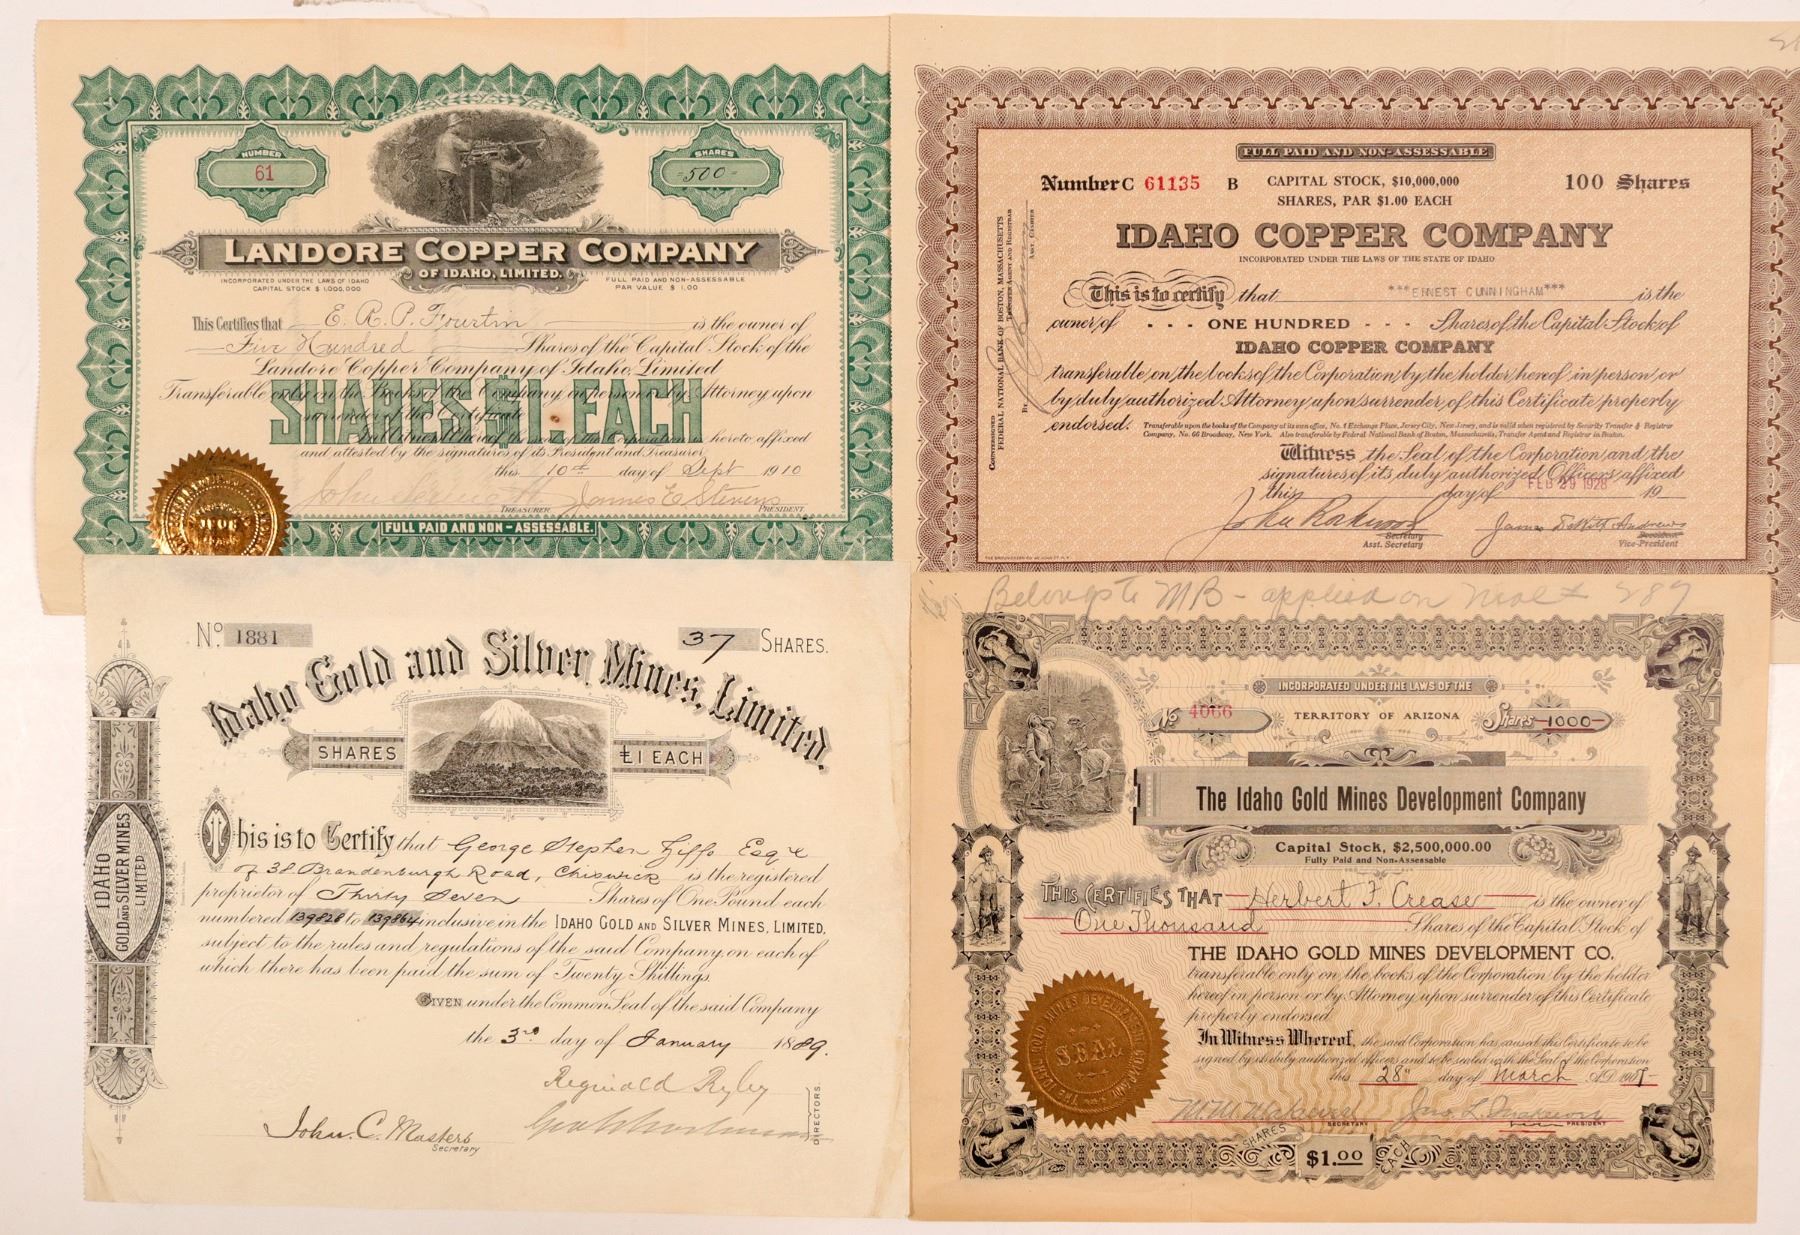 NUMBER
61
SHARES
500
LANDORE COPPER COMPANY
OF IDAHO, LIMITED.
INCORPORATED UNDER THE LAWS OF IDAHO
CAPITAL STOCK $1,000,000
FULL PAID AND NON-ASSESSABLE
PAR VALUE $1.00
This Certifies that E. R. P. Fourtin is the owner of
Five Hundred Shares of the Capital Stock of the
Landore Copper Company of Idaho, Limited
Transferable only on the Books of the Company in person or by Attorney upon
surrender of this Certificate
SHARES $1. EACH
hereto affixed
and attested by the signatures of its President and Treasurer
this 10th day of Sept 1910
James E Stevens
TREASURER
PRESIDENT
FULL PAID AND NON-ASSESSABLE.
FULL PAID AND NON-ASSESSABLE
Number C 61135 B CAPITAL STOCK, $10,000,000 100 Shares
SHARES, PAR $1.00 EACH
IDAHO COPPER COMPANY
INCORPORATED UNDER THE LAWS OF THE STATE OF IDAHO
This is to certify that ***ERNEST CUNNINGHAM*** is the
owner of - - - ONE HUNDRED - - - Shares of the Capital Stock of
IDAHO COPPER COMPANY
transferable on the books of the Corporation by the holder hereof in person or
by duly authorized Attorney upon surrender of this Certificate properly
endorsed. Transferable upon the books of the Company at its own office, No. 1 Exchange Place, Jersey City, New Jersey, and is valid when registered by Security Transfer & Registrar
Company, No. 66 Broadway, New York. Also transferable by Federal National Bank of Boston, Massachusetts, Transfer Agent and Registrar in Boston.
Witness the Seal of the Corporation and the
signatures of its duly authorized Officers affixed
this day of FEB 29 1928 19
Secretary
Asst. Secretary
James DeWitt Andrews
President
Vice-President
COUNTERSIGNED
FEDERAL NATIONAL BANK OF BOSTON, MASSACHUSETTS
TRANSFER AGENT AND REGISTRAR
By
ASST. CASHIER
No. 1881 37 SHARES.
Idaho Gold and Silver Mines, Limited.
SHARES £1 EACH
IDAHO
GOLD AND SILVER MINES
LIMITED
This is to Certify that George Stephen Ziffo Esqre
of 38 Brandenburgh Road, Chiswick is the registered
proprietor of Thirty Seven Shares of One Pound each
numbered 139828 to 139864 inclusive in the IDAHO GOLD AND SILVER MINES, LIMITED,
subject to the rules and regulations of the said Company on each of
which there has been paid the sum of Twenty Shillings.
GIVEN under the Common Seal of the said Company
the 3rd day of January 1889.
Reginald Ryley
DIRECTORS.
John C. Masters
Secretary
Belongs to MB - applied on
INCORPORATED UNDER THE LAWS OF THE
No 4066 TERRITORY OF ARIZONA Shares -1000-
The Idaho Gold Mines Development Company
Capital Stock, $2,500,000.00
Fully Paid and Non-Assessable
THIS CERTIFIES THAT Herbert F. Crease is the owner of
One Thousand Shares of the Capital Stock of
THE IDAHO GOLD MINES DEVELOPMENT CO.
transferable only on the books of the Corporation by the holder
hereof in person or by Attorney upon surrender of this Certificate
properly endorsed.
In Witness Whereof, the said Corporation has caused this Certificate to be
signed by its duly authorized officers and to be sealed with the Seal of the Corporation
this 28" day of March A.D. 1907
SECRETARY
PRESIDENT
THE IDAHO GOLD MINES DEVELOPMENT COMPANY
SEAL
SHARES $1.00 EACH